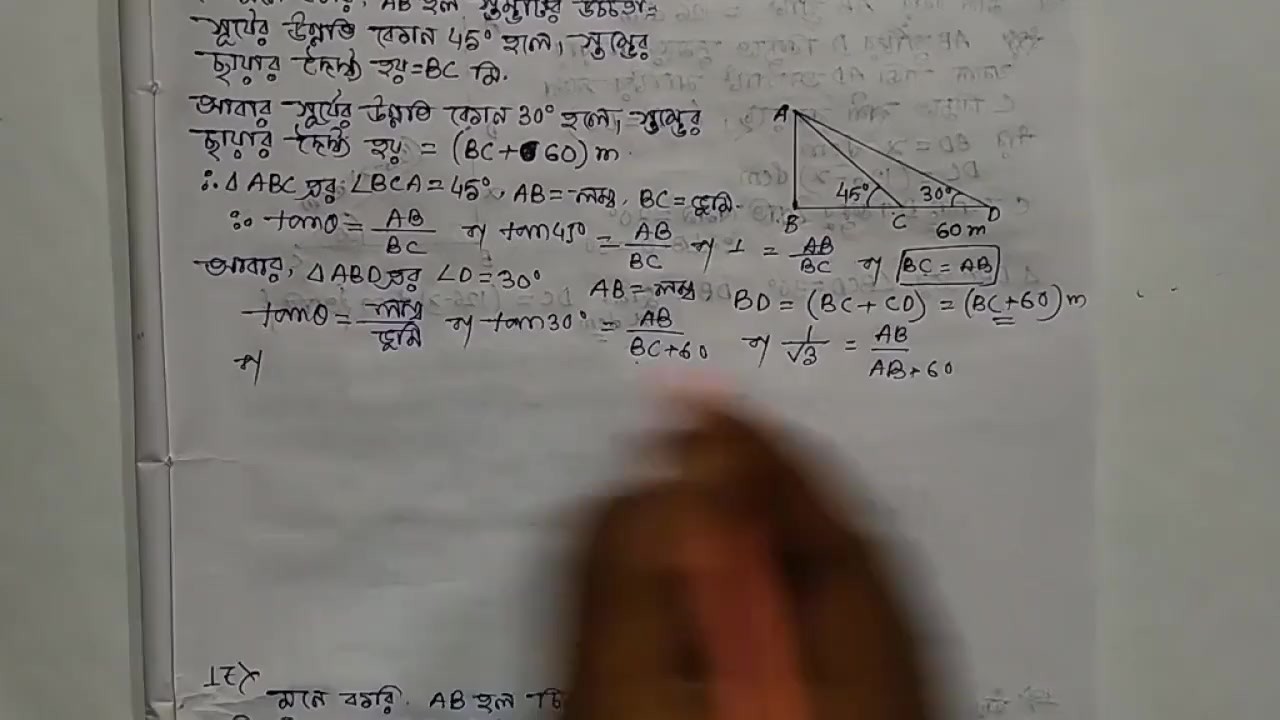 AB হল
সূর্যের উন্নতি কোন 45° হলে, স্তম্ভের
ছায়ার দৈর্ঘ্য হয় = BC মি.
আবার সূর্যের উন্নতি কোন 30° হলে, স্তম্ভের
ছায়ার দৈর্ঘ্য হয় = (BC+60) m.
A
45° 30°
B C D
60 m
∴ Δ ABC এর ∠BCA = 45°, AB = লম্ব, BC = ভূমি.
∴ tanθ = AB/BC বা tan45° = AB/BC বা 1 = AB/BC বা BC = AB
আবার, Δ ABD এর ∠D = 30° AB = লম্ব, BD = (BC + CD) = (BC+60) m
tanθ = লম্ব/ভূমি বা tan30° = AB/BC+60 বা 1/√3 = AB/AB+60
বা
মনে করি, AB হল